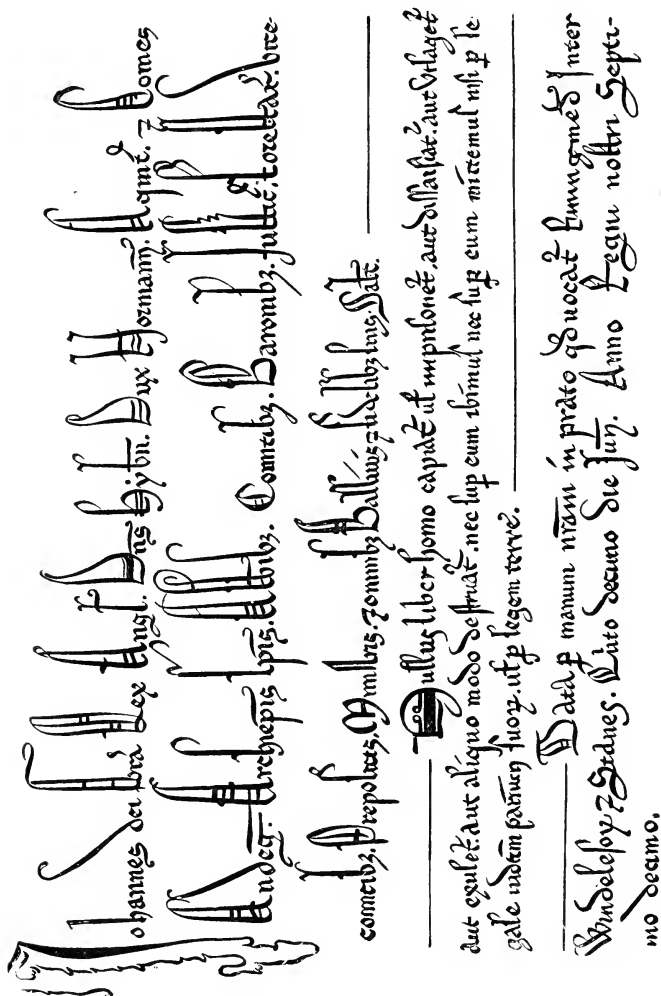 Johannes dei gr̄a Rex Angl. Dn̄s Hyb̄n. Dux Normann̄. Aqnīt. 7 Comes
Andeḡ. Archiep̄is. Ep̄is. Abb̄ibꝫ. Comitibꝫ. Baronibꝫ. Justic̄. Forestar̄. Vice-
comitibꝫ. Prepositis. Ministris. 7 omnibꝫ Ballivis 7 fidelibꝫ suis. Salt̄.
Nullus liber homo capiat̄ ul̄ imprisonet̄, aut dissaisiat̄. aut utlaget̄
aut exulet̄. aut aliquo modo destruat̄. nec sup̄ eum ibimus nec sup̄ eum mittemus nisi p̄ le
gale iudic̄m parium suoꝝ. ul̄ p̄ legem terre.
Data p̄ manum nr̄am in prato qd̄ uocat̄ Runingmed̄ Inter
Windelesoꝝ 7 Stanes. Q̄into decimo die Jun̄. Anno Regni nostri Septi-
mo decimo.